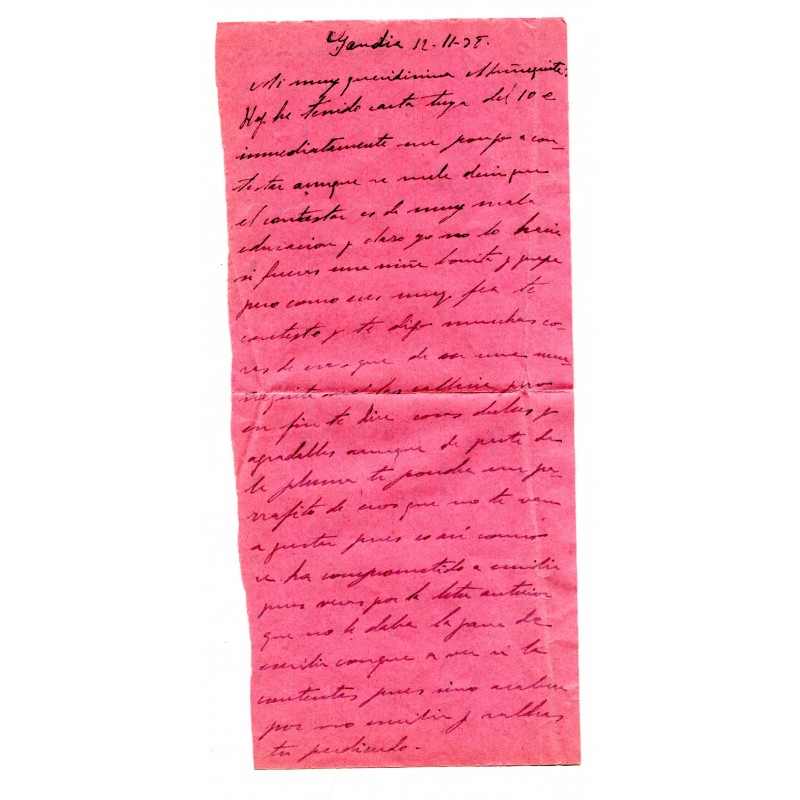 Gandia 12-11-38.
Mi muy queridisima Muñequita:
Hoy he tenido carta tuya del 10 e
inmediatamente me pongo a con-
testar aunque se suele decir que
el contestar es de muy mala
educacion y claro yo no lo haria
si fueras una niña bonita y guapa
pero como eres muy fea te
contesto y te digo munchas co-
sas de esas que de una mu-
ñequita pero
en fin te dire cosas dulces y
agradables aunque de parte de
la pluma te pondra un pa-
rrafito de esos que no te van
a gustar pues es asi como
se ha comprometido a escribir
pues veras por la letra anterior
que no le daba la gana de
escribir conque a ver si la
contentas pues sino acabara
por no escribir y saldras
tu perdiendo.